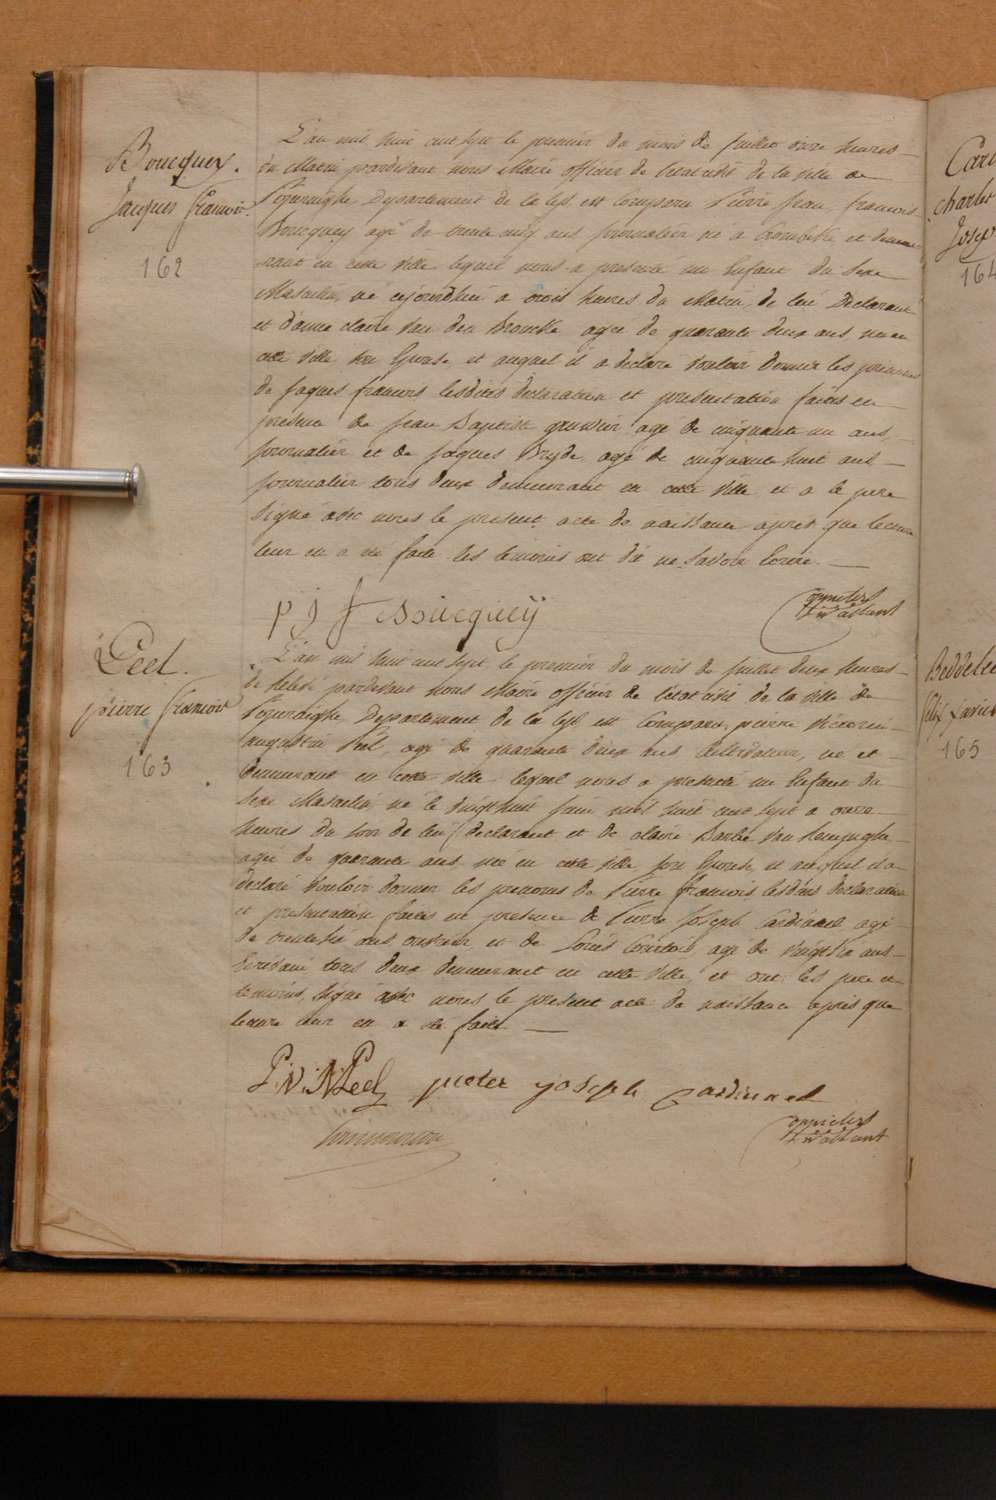 Boucquey.
Jacques françois
162
L'an mil huit cent sept le premier du mois de Juillet onze heures
du Matin pardevant nous Maire officier de l'etat civil de la ville de
Poperinghe, Departement de la Lys est comparu Pierre Jean françois
Boucquey agé de trente cinq ans journalier né a Crombeke et demeu-
rant en cette ville lequel nous a presenté un Enfant du Sexe
Masculin, né cejourdhui a trois heures du Matin, de lui Declarant
et d'anne claire Van den Broucke agée de quarante deux ans, née en
cette ville son Epouse, et auquel il a declaré vouloir donner les prenoms
de Jaques francois lesdites declaration et presentation faites en
presence de Jean Baptiste agé de cinquante un ans,
journalier et de Jaques Bryde agé de cinquante huit ans
journalier tous deux demeurant en cette ville, et a le pere
signé avec nous le present acte de naissance après que lecture
leur en a été faite les temoins ont dit ne savoir Ecrire.
p j f Boucqueÿ
Peel.
pierre françois
163
L'an mil huit cent sept, le premier du mois de Juillet deux heures
de relevé pardevant nous Maire officier de l'etat civil de la ville de
Poperinghe, Departement de la Lys est Comparu, pierre
augustin Peel, agé de quarante deux ans Cultivateur, né et
demeurant en cette ville lequel nous a presenté un Enfant du
sexe Masculin né le vingt huit Juin mil huit cent sept a onze
heures du soir de lui declarant et de claire Barbe Van
agée de quarante ans, née en cette ville son Epouse, et auquel il a
declaré vouloir donner les prenoms de Pierre françois lesdites declaration
et presentation faites en presence de Pierre Joseph Cardinael agé
de ans ouvrier et de Louis agé de ans
Ecrivain tous deux demeurant en cette ville, et ont les pere et
temoins, signé avec nous le present acte de naissance après que
lecture leur en a été faite
Peel pieter joseph Cardinael
Car
charlet
Josep
164
Beddelee
felix xavier
165